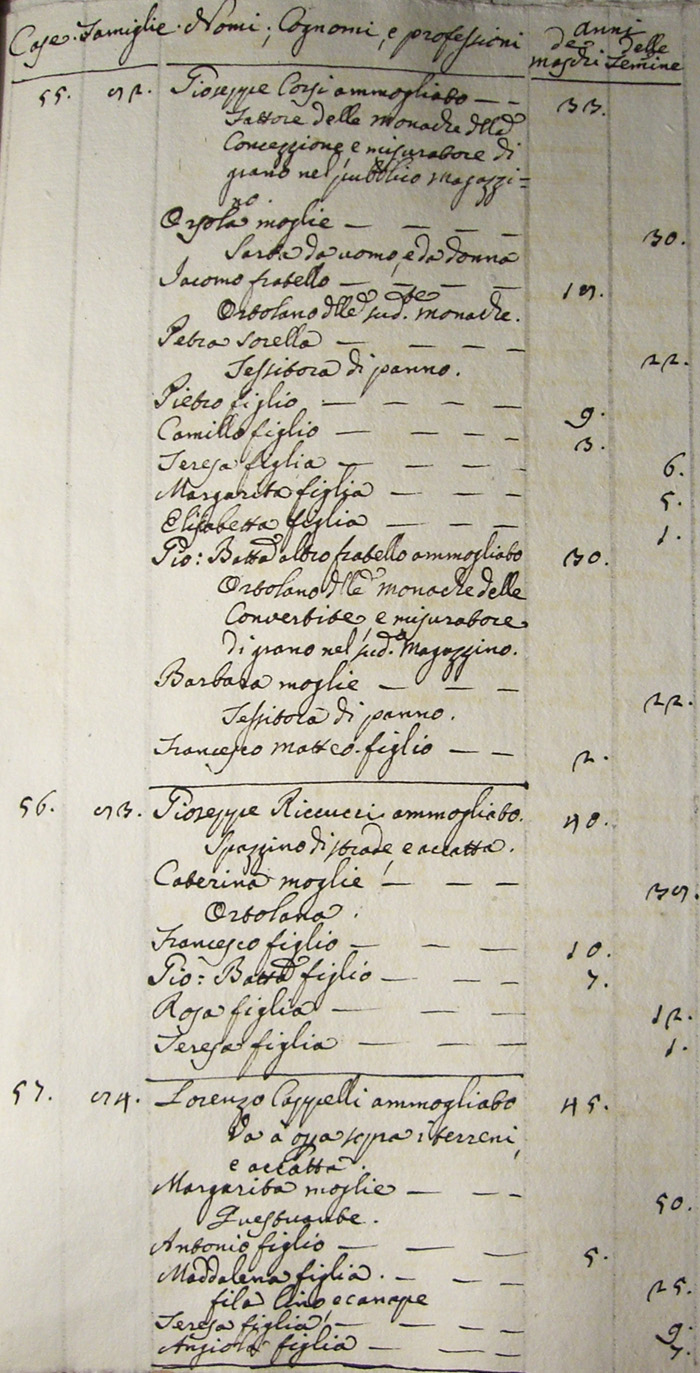 Case. Famiglie. Nomi, Cognomi, e professioni anni de maschi delle femine
55. 92. Gioseppe Corsi ammogliato — — 33.
Fattore delle monache della
Concezzione, e misuratore di
grano nel pubblico Magazzi=
no.
Orsola moglie — — — — 30.
Sarta da uomo, e da donna
Jacomo fratello — — — — 19.
Ortolano delle sud.te monache.
Petra sorella — — — — 22.
Tessitora di panno.
Pietro figlio — — — — 9.
Camillo figlio — — — — 3.
Teresa figlia — — — — 6.
Margarita figlia — — — 5.
Elisabetta figlia — — — 1.
Gio: Batta altro fratello ammogliato 30.
Ortolano delle monache delle
Convertite, e misuratore
di grano nel sud.o Magazzino.
Barbara moglie — — — 22.
Tessitora di panno.
Francesco Matteo figlio — — 2.
56. 93. Gioseppe Riccucci ammogliato. 40.
Spazzino di strade, e accatta.
Caterina moglie — — — 39.
Ortolana.
Francesco figlio — — — 10.
Gio: Batta figlio — — — 7.
Rosa figlia — — — 12.
Teresa figlia — — — 1.
57. 94. Lorenzo Cappelli ammogliato 45.
Va a opra sopra i terreni,
e accatta.
Margarita moglie — — — 50.
Questuante.
Antonio figlio — — — 5.
Maddalena figlia. — — — 25.
fila lino, e canape
Teresa figlia — — — 9.
Angiola figlia — — — 7.